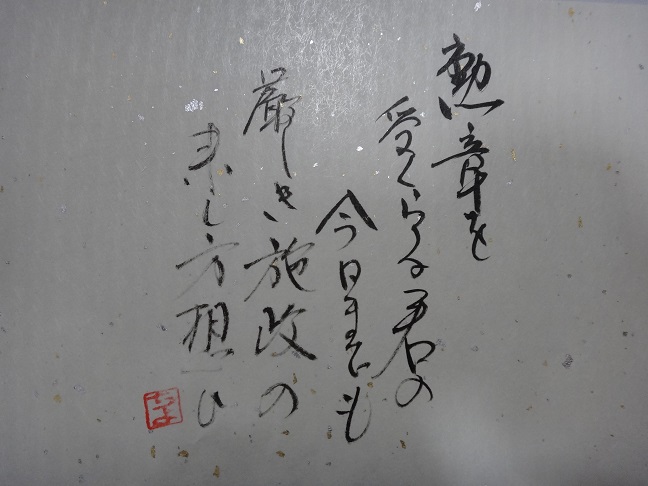 勲章を
受くらる君の
今日までも
厳しき施政の
来し方想ひ